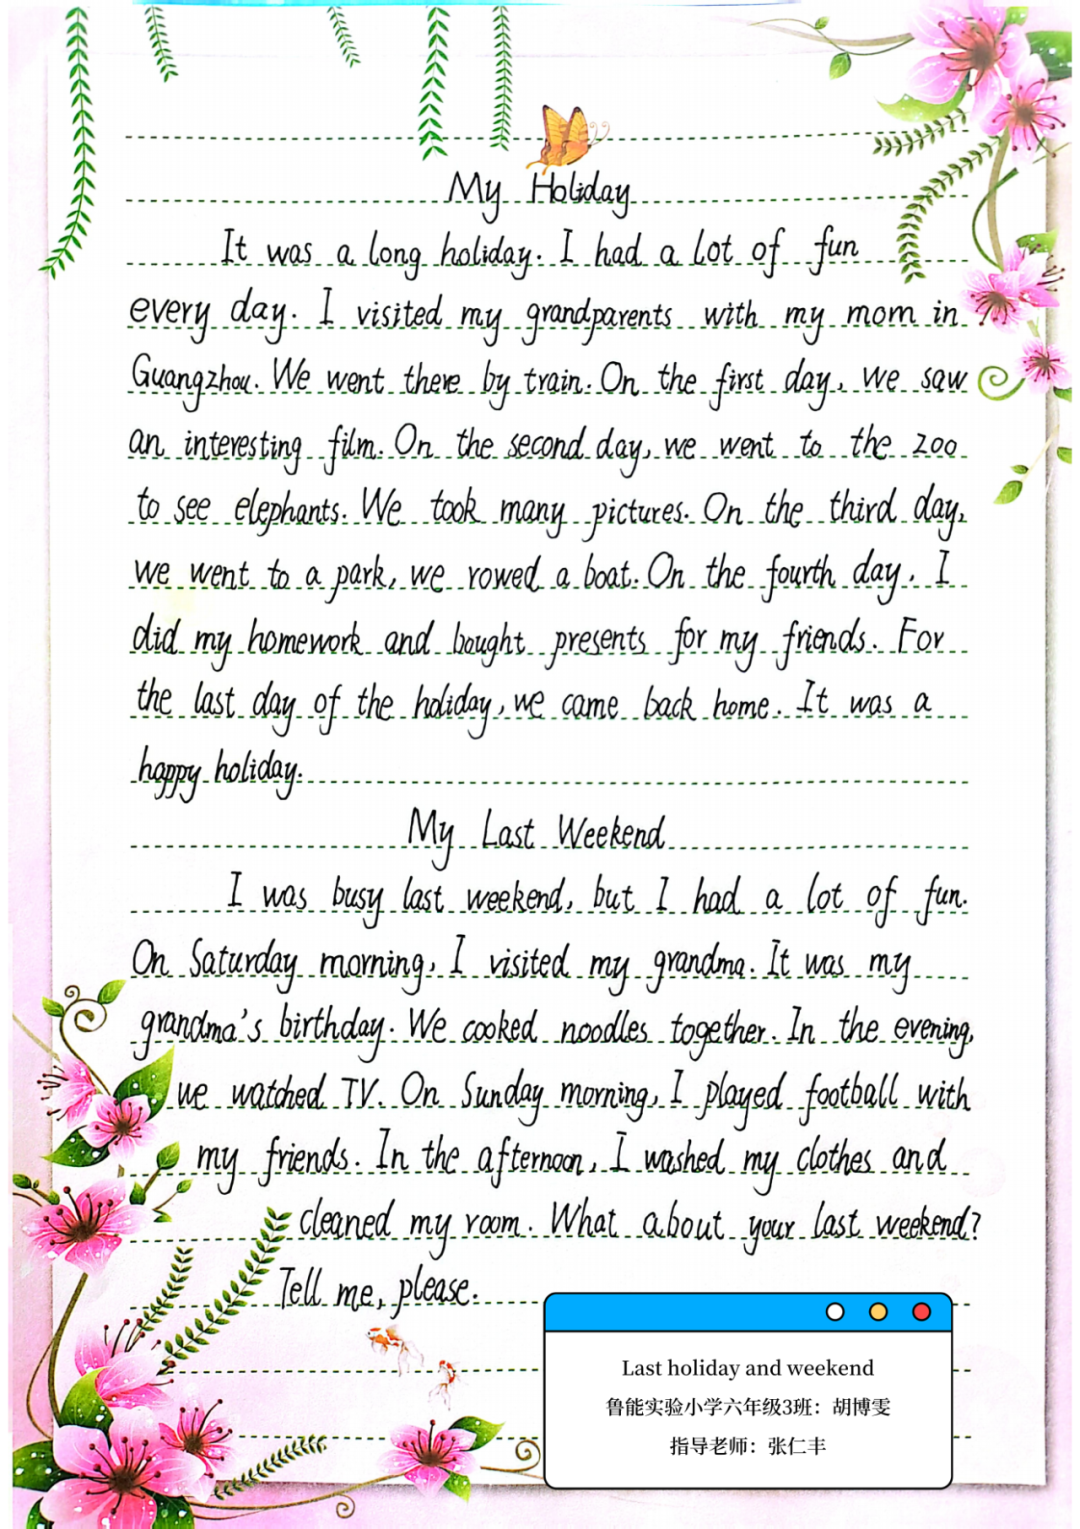 My Holiday
It was a long holiday. I had a lot of fun
every day. I visited my grandparents with my mom in
Guangzhou. We went there by train. On the first day, we saw
an interesting film. On the second day, we went to the zoo
to see elephants. We took many pictures. On the third day,
we went to a park, we rowed a boat. On the fourth day, I
did my homework and bought presents for my friends. For
the last day of the holiday, we came back home. It was a
happy holiday.
My Last Weekend
I was busy last weekend, but I had a lot of fun.
On Saturday morning, I visited my grandma. It was my
grandma's birthday. We cooked noodles together. In the evening,
we watched TV. On Sunday morning, I played football with
my friends. In the afternoon, I washed my clothes and
cleaned my room. What about your last weekend?
Tell me, please.
Last holiday and weekend
鲁能实验小学六年级3班：胡博雯
指导老师：张仁丰